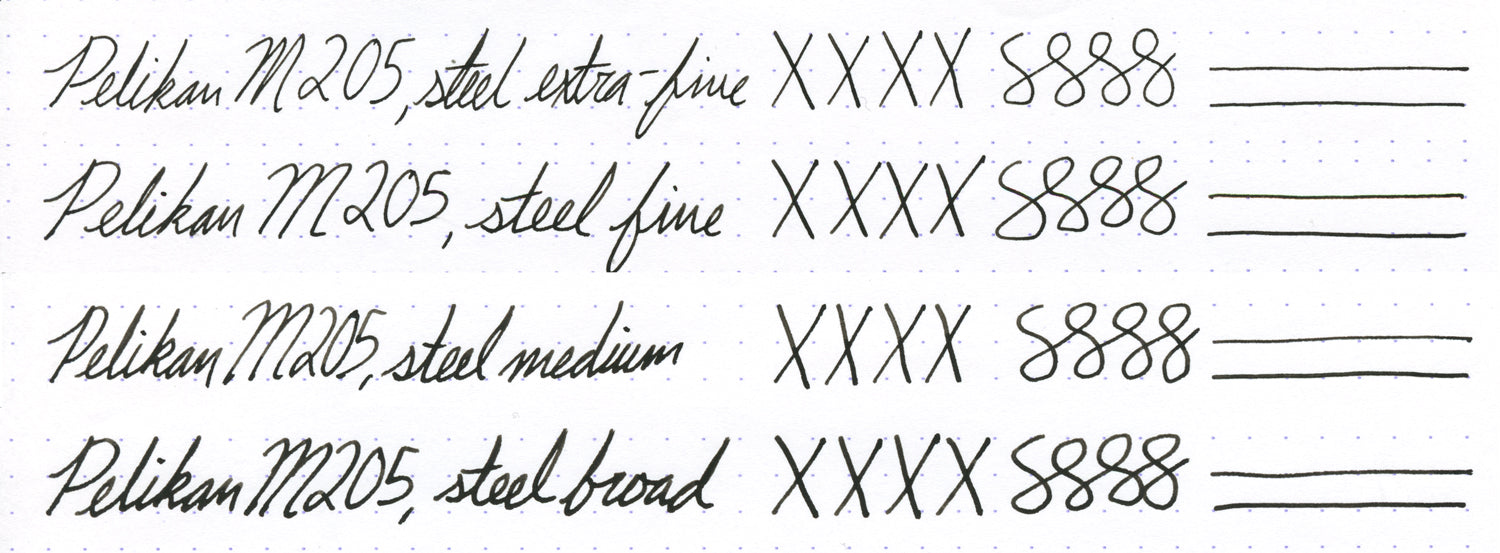 Pelikan M205, steel extra-fine XXXX 8888
Pelikan M205, steel fine XXXX 8888
Pelikan M205, steel medium XXXX 8888
Pelikan M205, steel broad XXXX 8888